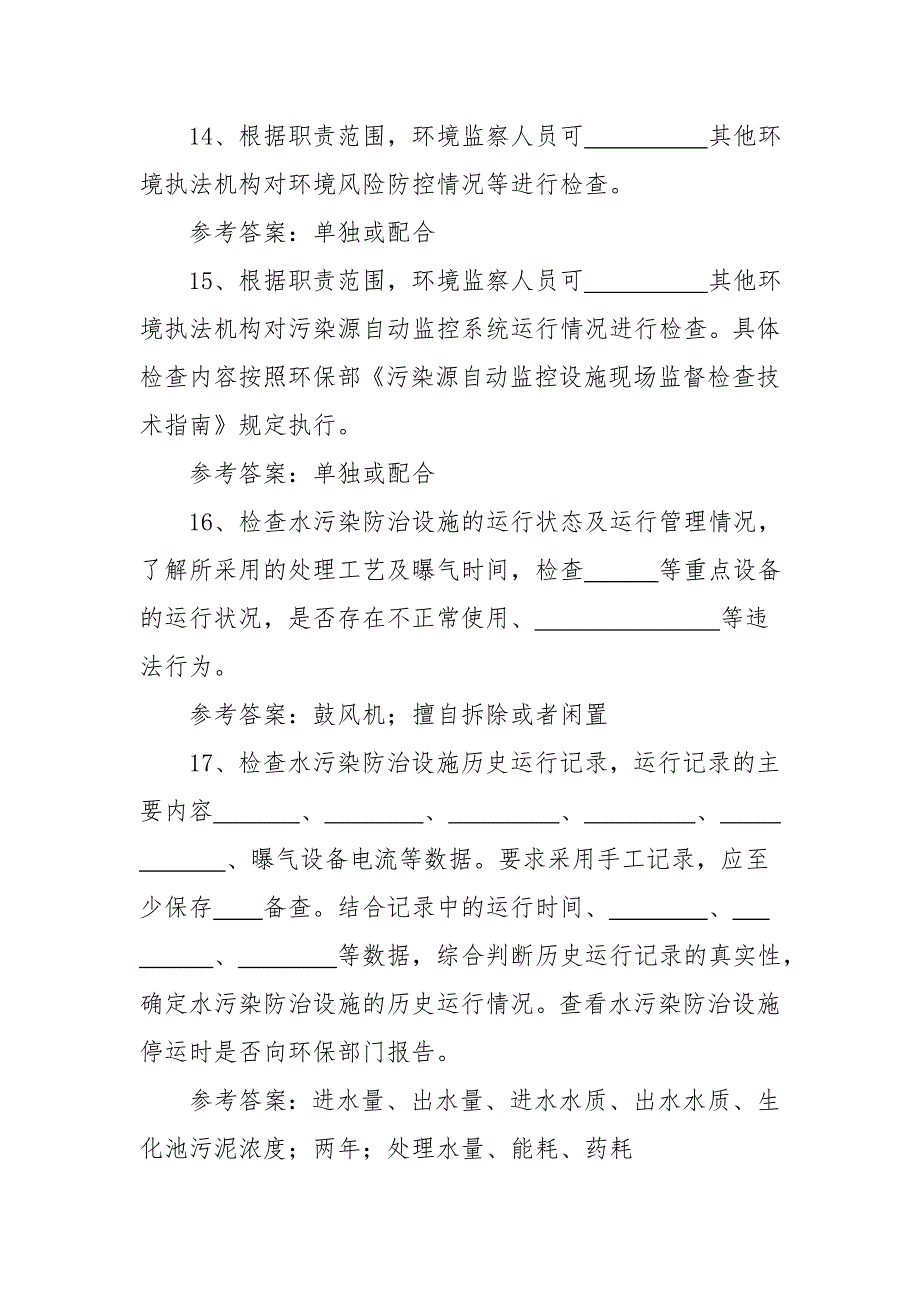 14、根据职责范围，环境监察人员可__________其他环
境执法机构对环境风险防控情况等进行检查。
参考答案：单独或配合
15、根据职责范围，环境监察人员可__________其他环
境执法机构对污染源自动监控系统运行情况进行检查。具体
检查内容按照环保部《污染源自动监控设施现场监督检查技
术指南》规定执行。
参考答案：单独或配合
16、检查水污染防治设施的运行状态及运行管理情况，
了解所采用的处理工艺及曝气时间，检查______等重点设备
的运行状况，是否存在不正常使用、_______________等违
法行为。
参考答案：鼓风机；擅自拆除或者闲置
17、检查水污染防治设施历史运行记录，运行记录的主
要内容_______、________、_________、_________、_____
_______、曝气设备电流等数据。要求采用手工记录，应至
少保存____备查。结合记录中的运行时间、________、___
______、________等数据，综合判断历史运行记录的真实性，
确定水污染防治设施的历史运行情况。查看水污染防治设施
停运时是否向环保部门报告。
参考答案：进水量、出水量、进水水质、出水水质、生
化池污泥浓度；两年；处理水量、能耗、药耗